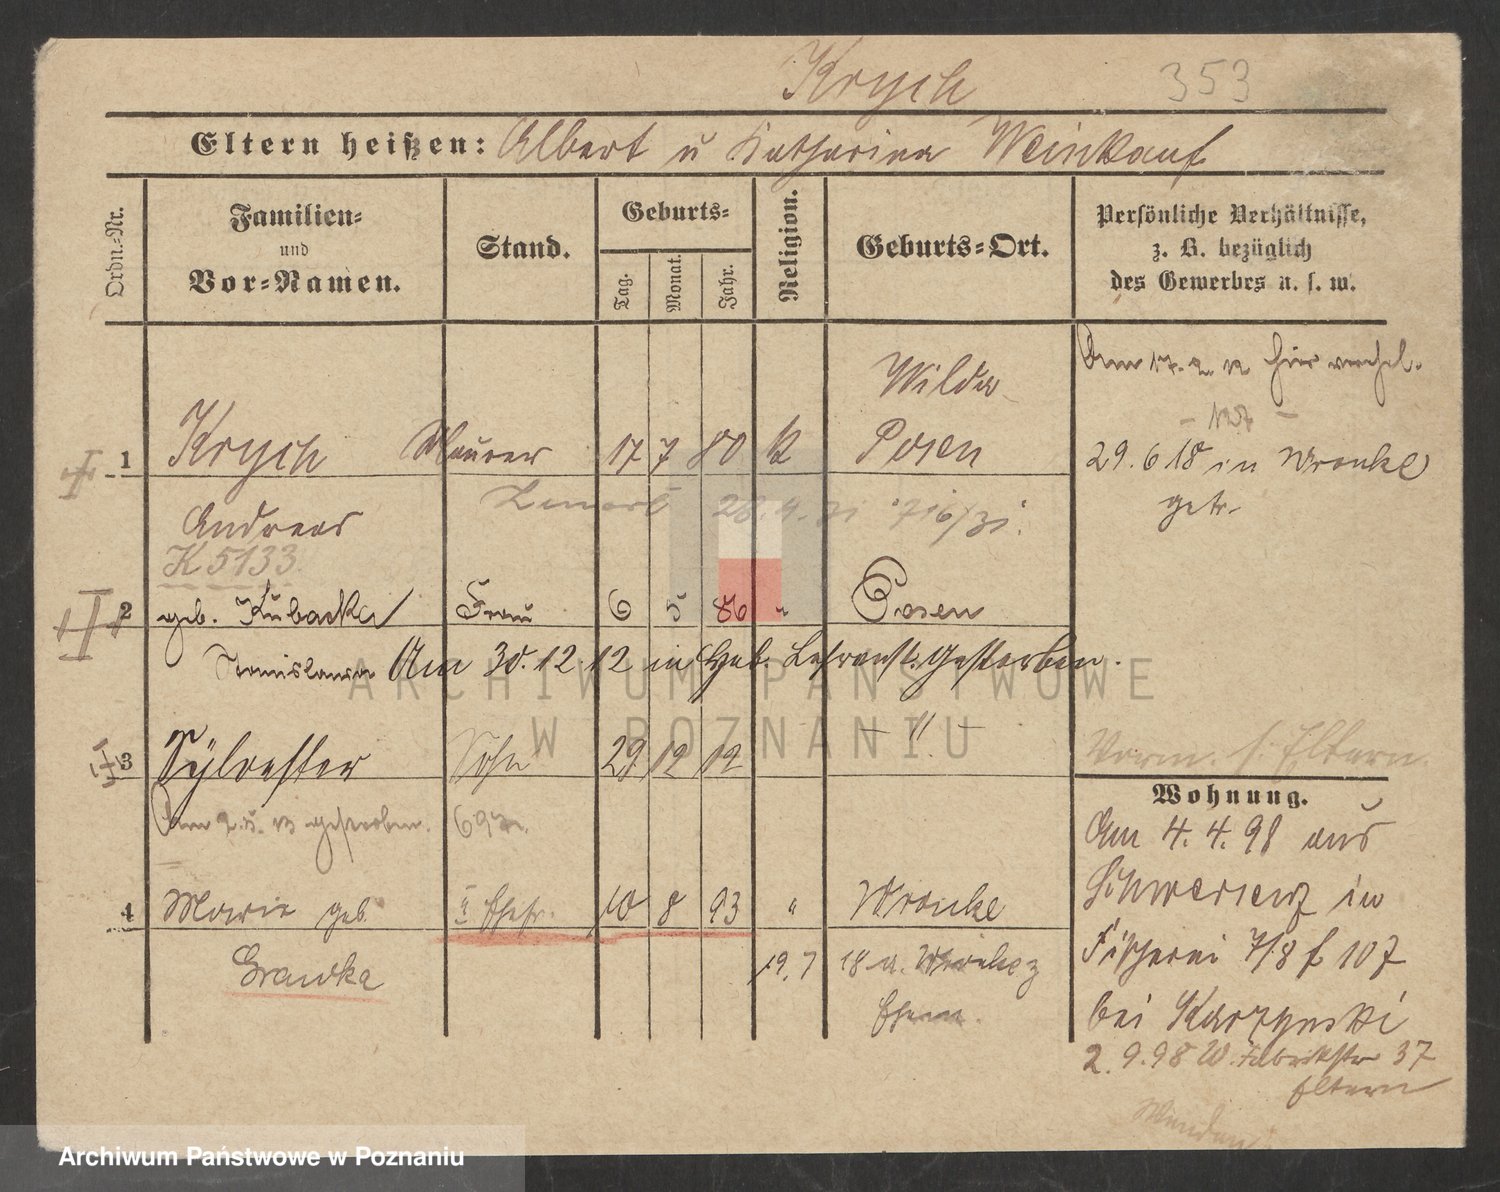 Krych 353
Eltern heißen: Albert u Katharina Weinkauf
Ordn.=Nr.
Familien=
und
Vor=Namen.
Stand.
Geburts=
Tag.
Monat.
Jahr.
Religion.
Geburts=Ort.
Persönliche Verhältnisse,
z. B. bezüglich
des Gewerbes u. s. w.
Am 17. 2. 12 hier
Wilda
1 Krych Maurer 17 7 80 k Posen
29. 6 18 in Wronke
getr.
Andreas
28.4.31
K 5133.
2 geb. Kubacka Frau 6 5 86 " Posen
Stanislawa Am 30.12.12 in Heb. Lehranst. Gestorben.
3 Sylvester Sohn 29 12 12 - " -
Am 2.5.13 gestorben.
Vorm. s. Eltern.
Wohnung.
Am 4. 4. 98 aus
Schwersenz in
Fischerei 7/8 f 107
bei Karzynski
2. 9. 98 W. Fabrikstr 37
Eltern
4 Marie geb. II Ehefr. 10 8 93 " Wronke
Grawka 19. 7 18 a. Wronke z
Ehem.
ARCHIWUM PAŃSTWOWE
W POZNANIU
Archiwum Państwowe w Poznaniu